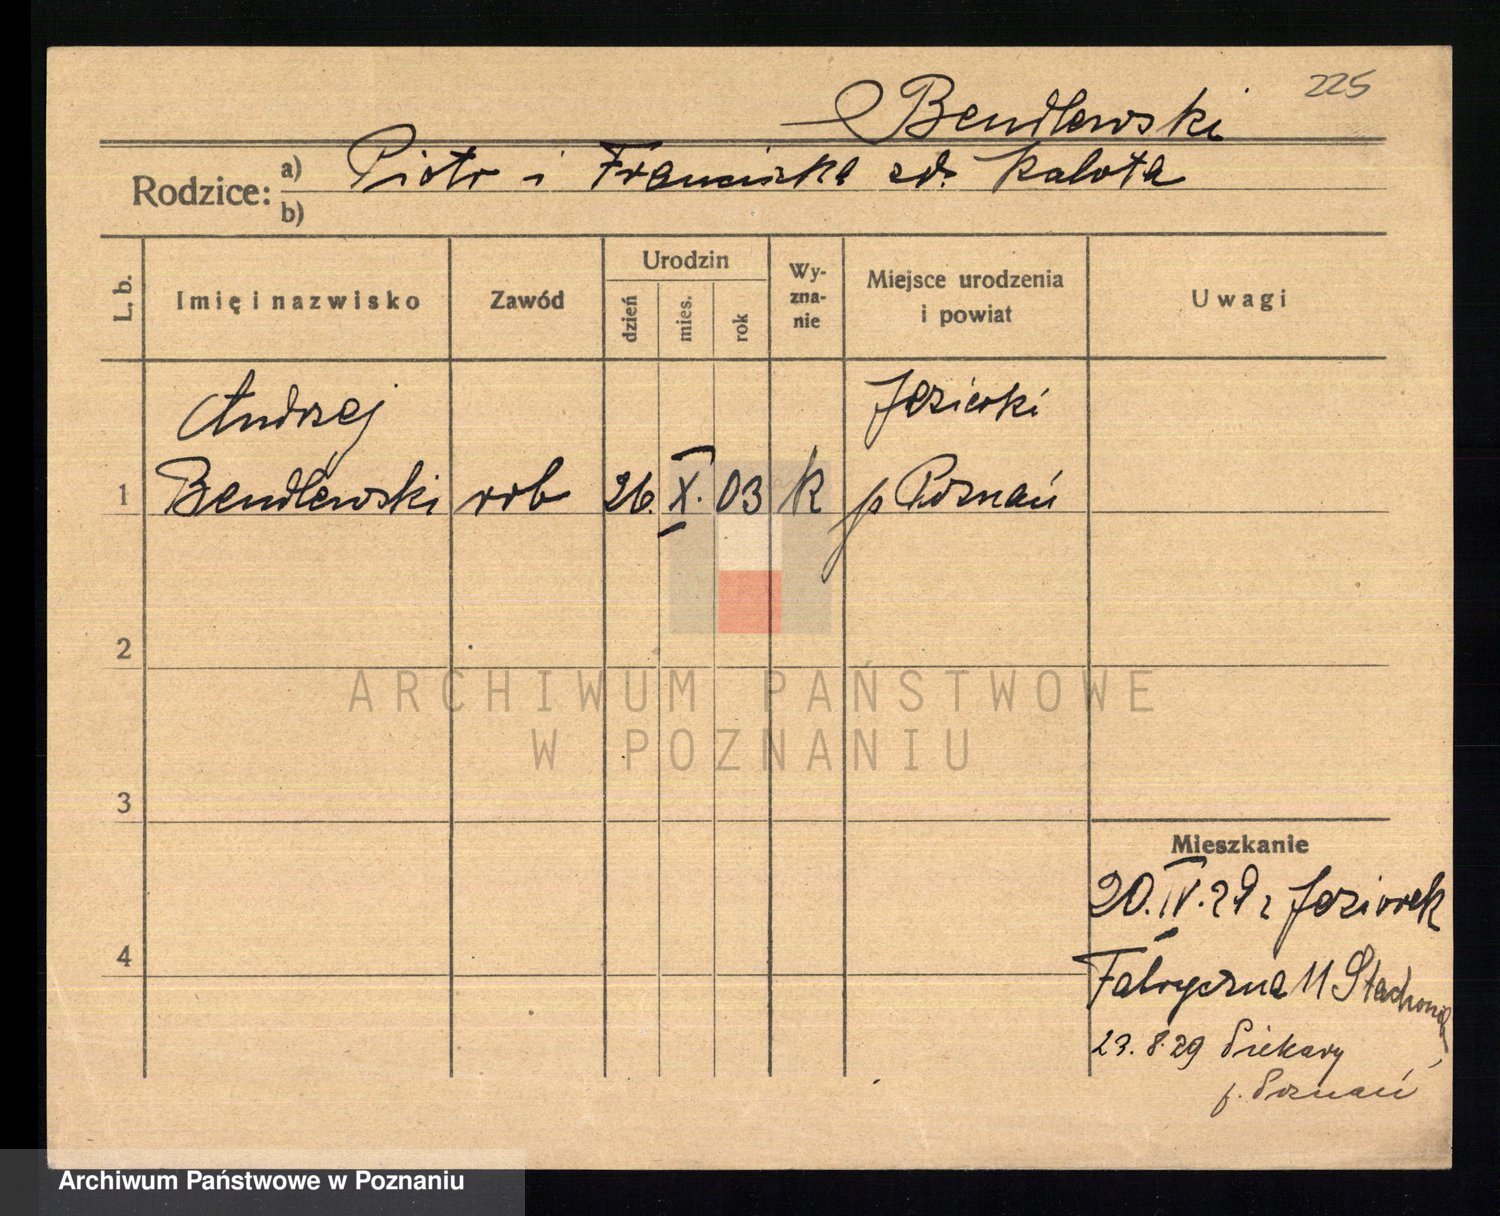 225
Bendlewski
Rodzice: a) Piotr i Franciszka zd. Kalota
b)
L. b. Imię i nazwisko Zawód Urodzin dzień mies. rok Wy-zna-nie Miejsce urodzenia i powiat Uwagi
Andrzej Jeziorki
1 Bendlewski rob 26. X. 03 k p Poznań
2
ARCHIWUM PAŃSTWOWE
W POZNANIU
3
Mieszkanie
20.IV.29 z Jeziorek
4
Fabryczna 11
23.8.29 Piekary
p. Poznań
Archiwum Państwowe w Poznaniu